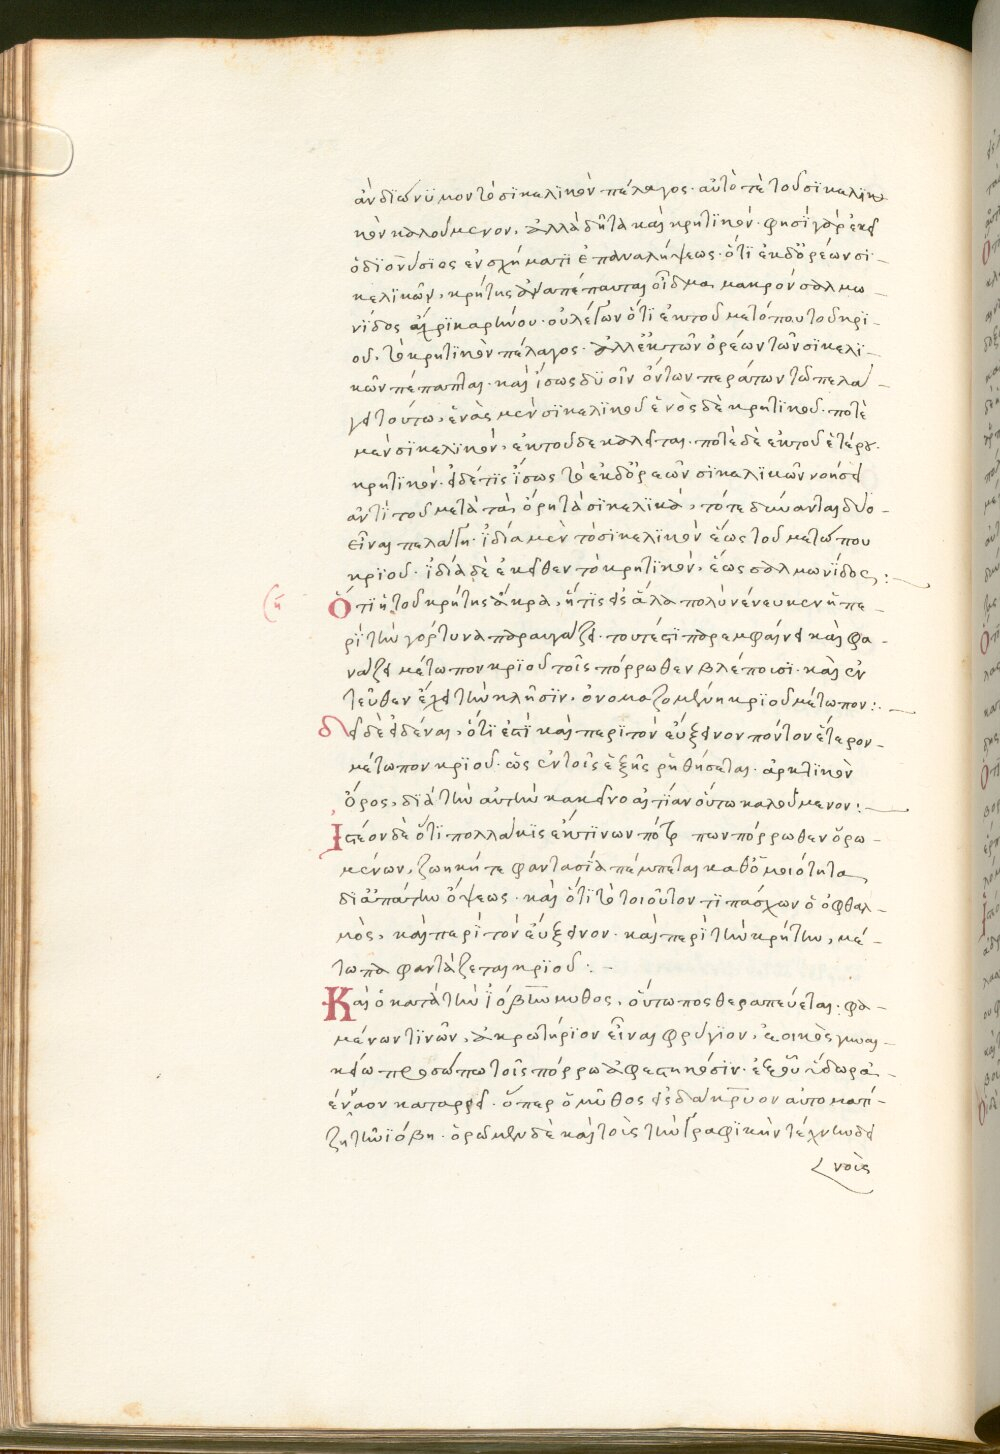 ἂν διώνϋμον τὸ σϊκελϊκὸν πέλαγος· αὐτό τε τοῦ σϊκελϊκὸ
κὸν καλούμενον, ἀλλὰ δῆτα καὶ κρητϊκόν· φησὶ γὰρ ἐκεῖ
ὁ διονύσιος ἐν σχήματι ἐπαναλήψεως· ὅτι ἐκ δ' ὀρέων σι-
κελϊκῶν, κρήτης ἀναπέπταται οἶδμα, μακρὸν σαλμω-
νίδος ἄχρι καρήνου· οὐ λέγων ὅτι ἐκ τοῦ μετώπου τοῦ κρι-
οῦ, τὸ κρητϊκὸν πέλαγος· ἀλλ' ἐκ τῶν ὀρέων τῶν σϊκελϊ-
κῶν πέπαπται· καὶ ἴσως δϋοῖν ὄντων περάτων τῷ πελά-
γει τούτω, ἑνὸς μὲν σϊκελϊκοῦ ἑνὸς δὲ κρητϊκοῦ· ποτὲ
μὲν σϊκελϊκὸν, ἐκ τοῦδε καλεῖται· ποτὲ δὲ ἐκ τοῦ ἑτέρου·
κρητϊκόν· εἰ δέ τις ἴσως τὸ ἐκ δ' ὀρέων σϊκελϊκῶν νοήσει
αντὶ τοῦ μετὰ τὰ ὄρη τὰ σϊκελϊκὰ, τότε δύνανται δύο
εἶναι πελάγη· ἰδία μὲν τὸ σϊκελϊκὸν ἕως τοῦ μετώπου
κριοῦ· ἰδία δὲ ἐκεῖθεν τὸ κρητϊκὸν, ἕως σαλμωνίδος:
(ἡ
Ὅτι ἡ τοῦ κρήτης ἄκρα, ἥτις εἰς ἅλα πολὺ νένευκεν ἢ πε-
ρὶ τὴν γόρτυνα παραυγάζει· τουτέστι παρεμφαίνει καὶ φα-
ντάζει μέτωπον κριοῦ τοῖς πόρρωθεν βλέπουσι· καὶ ἐν
τεῦθεν ἔχει τὴν κλῆσϊν, ὀνομαζομένη κριοῦ μέτωπον:
δεῖ δὲ εἰδέναι, ὅτι ἐστὶ καὶ περὶ τὸν εὔξεινον πόντον ἕτερον
μέτωπον κριοῦ· ὡς ἐν τοῖς ἑξῆς ῥηθήσεται· ἀρκτϊκὸν
ὄρος, διὰ τὴν αὐτὴν κακεῖνο αἰτίαν οὕτω καλούμενον:
Ἰστέον δὲ ὅτι πολλάκις ἐκ τινων πετρ των πόρρωθεν ὁρω-
μένων, ζωηκή τε φαντασία πέμπεται καθ' ὁμοιότητα,
δι' ἀπάτην ὄψεως· καὶ ὅτι τὸ τοιοῦτον τι πάσχων ὁ ὀφθαλ-
μὸς, καὶ περὶ τὸν εὔξεινον· καὶ περὶ τὴν κρήτην, μέ-
τωπα φαντάζεται κριοῦ:
Καὶ ὁ κατὰ τὴν ϊόβην μῦθος, οὕτω πως θεραπεύεται· φα-
μένων τινῶν, ἀκρωτήριον εἶναι φρύγϊον, ἐοικὸς γυναι-
κείω προσώπω τοῖς πόρρω ἀφεστηκόσϊν· ἐξ οὗ ὕδωρ ἀ-
έναον καταρρεῖ· ὅπερ ὁ μῦθος εἰς δάκρυον αὐτοματί-
ζη τῆ ϊόβη· ὁρῶμεν δὲ καὶ τοὺς τὴν γραφϊκὴν τέχνην δει
νοὺς